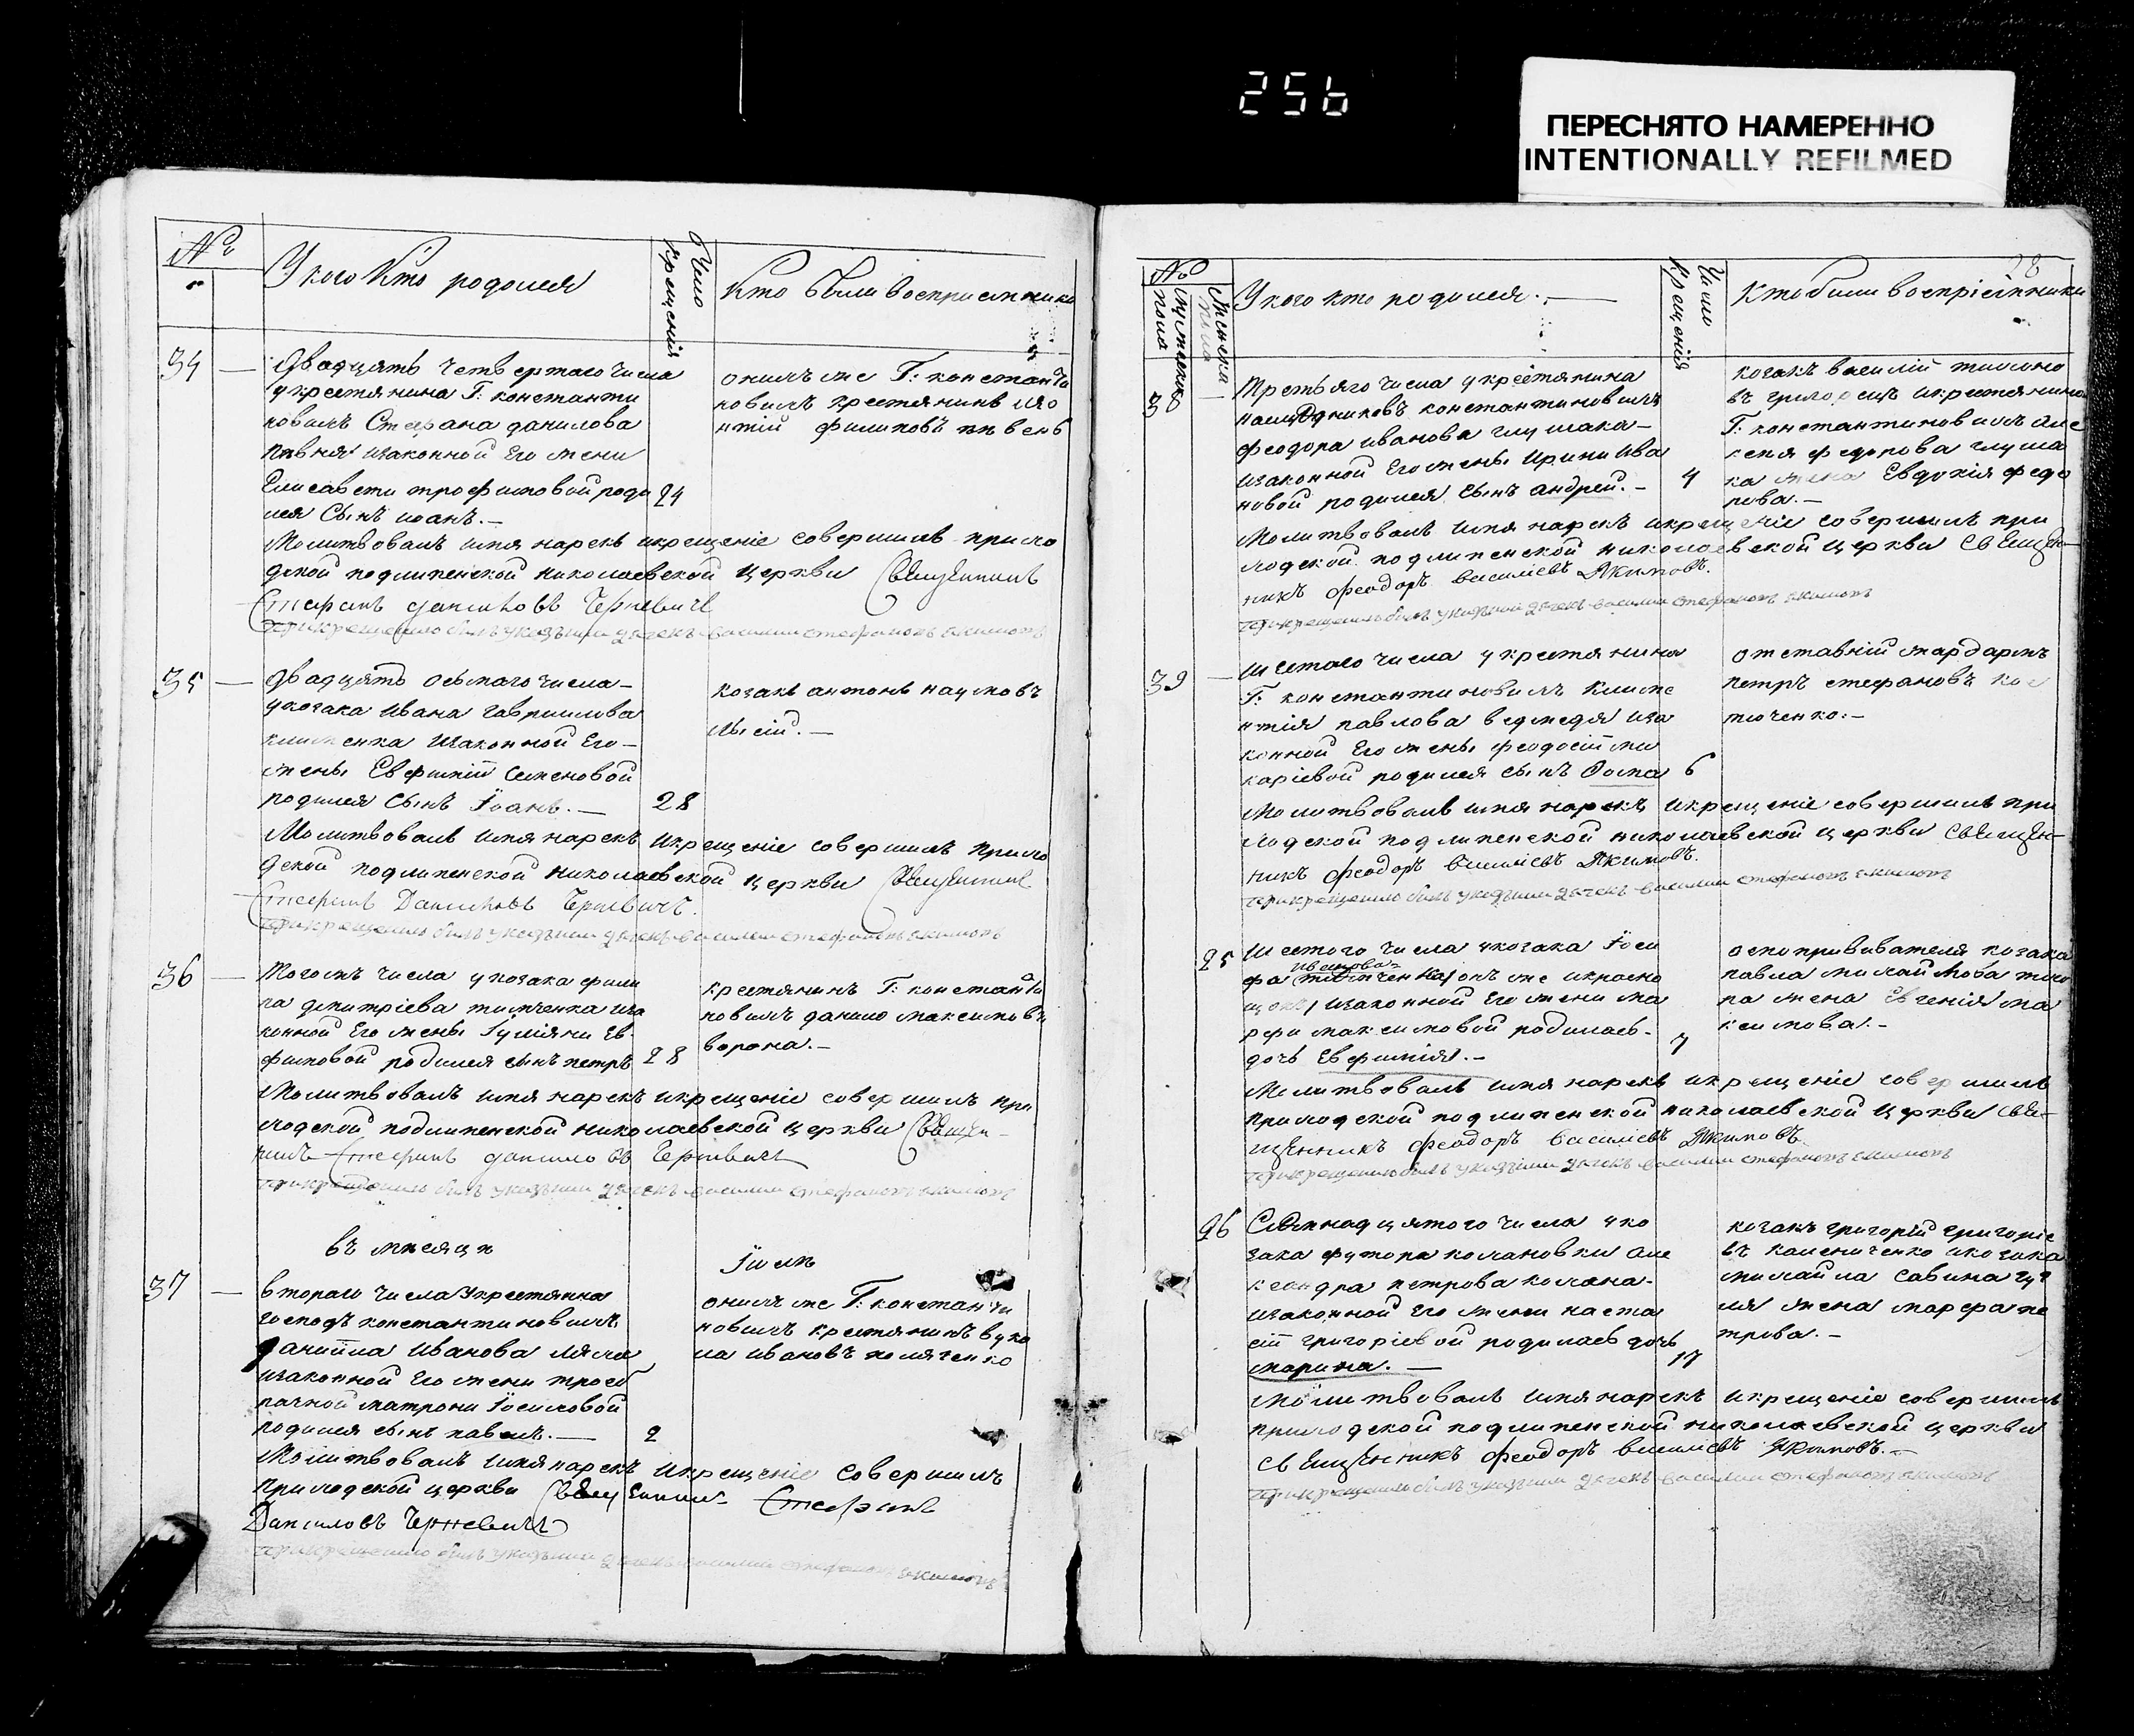 256
ПЕРЕСНЯТО НАМЕРЕННО
INTENTIONALLY REFILMED
№
У кого кто родился
Число крещенія
Кто были восприемники
34
Двадцять четвертаго числа
у крестянина Г: константи
новичъ Стефана данилова
изаконной Его жени
Елисавети трофимовой роди
24
лся Сынъ иоанъ.—
онихъ же Г: констан
новичъ крестянинъ
филиповъ
Молитвовалъ имя нарекъ икрещеніе совершилъ прихо
дской подлипенской николаевской церкви Священникъ
Стефанъ даниловъ Черневичъ
прикрещении былъ указный дячекъ василий стефановъ якимовъ
35
двадцять осьмаго числа—
укозака ивана гавриилова
клименка изаконной Его—
жены Евфиміи Семеновой
родился Сынъ Іоанъ.—
28
козакъ антонъ наумовъ
лысій.—
Молитвовалъ имя нарекъ икрещеніе совершилъ прихо
дской подлипенской николаевской церкви Священникъ
Стефанъ Даниловъ Черневичъ.
прикрещении былъ указный дячекъ василий стефановъ якимовъ
36
Тогожъ числа укозака фили
па димитріева тимченка иза
конной Его жены Іуліяни Ев
фимовой родился сынъ петръ
28
крестянинъ Г: констан
новичъ данило максимовъ
ворона.—
Молитвовалъ имя нарекъ икрещеніе совершилъ при
ходской подлипенской николаевской церкви Священ—
никъ Стефанъ даниловъ Черневичъ
прикрещении былъ указный дячекъ василий стефановъ якимовъ
въ мисяци
Іюль
37
втораго числа Укрестянина
господъ константиновичъ
даниила иванова ляха
изаконной Его жени троеб
рачной матрони Іосиповой
родился сынъ павелъ.—
2
онихъ же Г: констан
новичъ крестянинъ вуко
ла ивановъ поляченко
Молитвовалъ имя нарекъ икрещеніе совершилъ
приходской церкви Священникъ Стефанъ
Даниловъ Черневичъ
прикрещении былъ указный дячекъ василий стефановъ якимовъ
28
№
мужеска пола
женска пола
У кого кто родился.—
Число Крещенія
Кто были воспріемники
Третьяго числа укрестянина
наслѣдниковъ константиновичъ
феодора иванова глушака—
изаконной Его жены Ирини ива
новой родился Сынъ андрей.—
4
козакъ василій тихоно
въ григорецъ икрестянина
Г: константиновичъ але
ксея федорова глуша
ка жена Евдокія федо
рова.—
Молитвовалъ имя нарекъ икрещеніе совершилъ при
ходской подлипенской николаевской церкви Священ—
никъ феодоръ василіевъ Якимовъ.
прикрещении былъ указный дячекъ василий стефановъ якимовъ
39
Шестаго числа укрестянина
Г: константиновичъ климе
нтія павлова ведмедя иза
конной Его жены феодосіи ма
каріевой родился сынъ Фома
6
отставній жардармъ
петръ стефановъ кос
тюченко.—
Молитвовалъ имя нарекъ икрещеніе совершилъ при
ходской подлипенской николаевской церкви Священ—
никъ феодоръ василіевъ Якимовъ.
прикрещении былъ указный дячекъ василий стефановъ якимовъ
25
Шестого числа укозака Іоси
фа
иванова
тимченка онъ же икрасно
щокъ изаконной Его жени ма
рфи максимовой родилась—
дочь Евфимія.—
7
оспопрививателя козака
павла михайлова тихо
на жена Евгенія ма
ксимова.—
Молитвовалъ имя нарекъ икрещеніе совершилъ
приходской подлипенской николаевской церкви Свя—
щенникъ феодоръ василіевъ Якимовъ
прикрещении былъ указный дячекъ василий стефановъ якимовъ
26
Семнадцятого числа уко
зака футора колановки але
ксандра петрова колана—
изаконной Его жени наста
сіи григоріевой родилась дочь
марина.—
17
козакъ григорій григоріе
въ каленниченко икозака
михайла савина
ля жена марфа пе
трова.—
Молитвовалъ имя нарекъ икрещеніе совершилъ
приходской подлипенской николаевской церкви
Священникъ феодоръ василіевъ Якимовъ.—
прикрещении былъ указный дячекъ василий стефановъ якимовъ